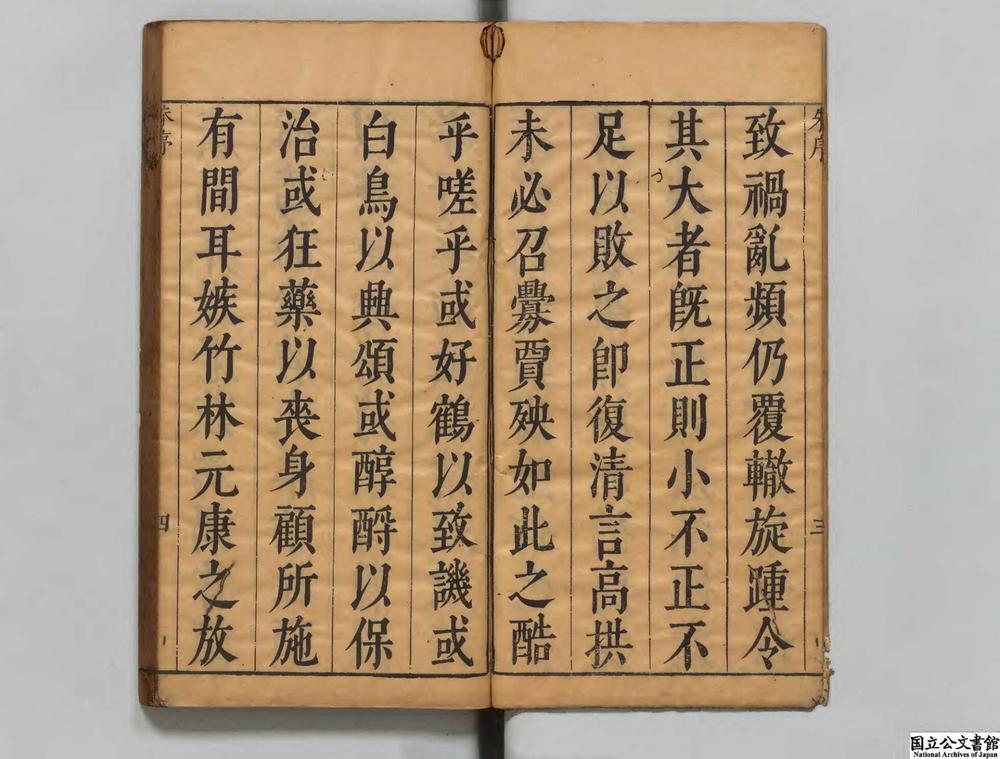 致禍亂頻仍覆轍旋踵令
其大者旣正則小不正不
足以敗之卽復清言高拱
未必召釁賈殃如此之酷
三
乎嗟乎或好鶴以致譏或
白鳥以興頌或醇酹以保
治或狂藥以丧身顧所施
有間耳嫉竹林元康之放
序
四
国立公文書館
National Archives of Japan